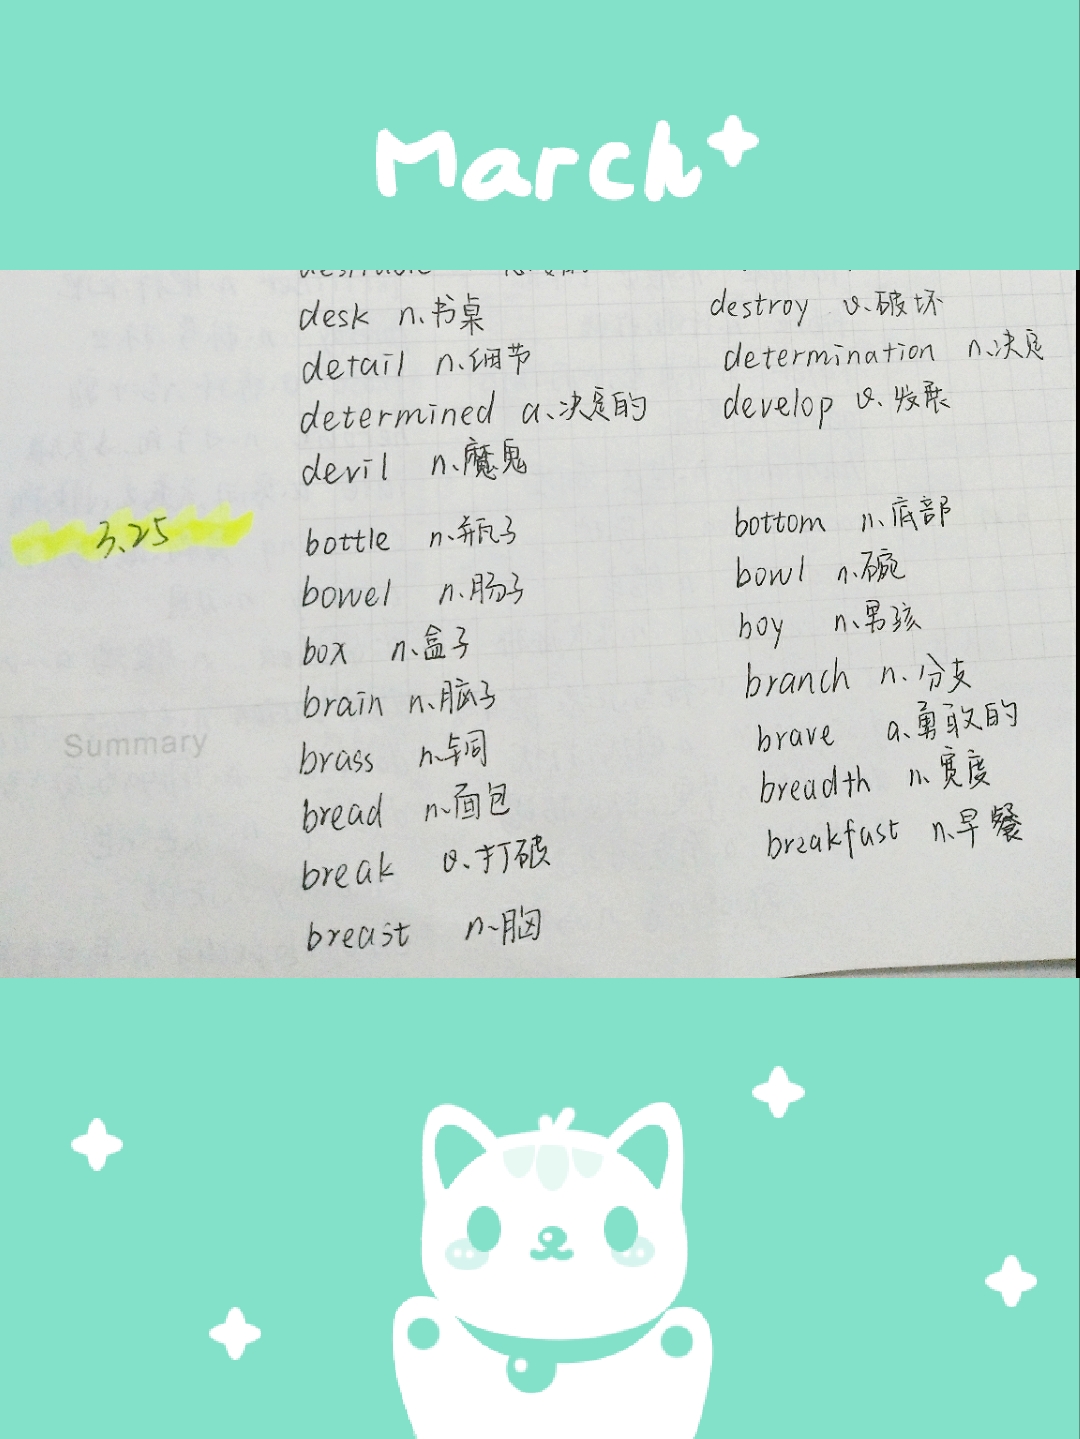 March
desk n.书桌 destroy v.破坏
detail n.细节 determination n.决定
determined a.决定的 develop v.发展
devil n.魔鬼
3.25 bottle n.瓶子 bottom n.底部
bowel n.肠子 bowl n.碗
box n.盒子 boy n.男孩
brain n.脑子 branch n.分支
Summary
brass n.铜 brave a.勇敢的
bread n.面包 breadth n.宽度
break v.打破 breakfast n.早餐
breast n.胸